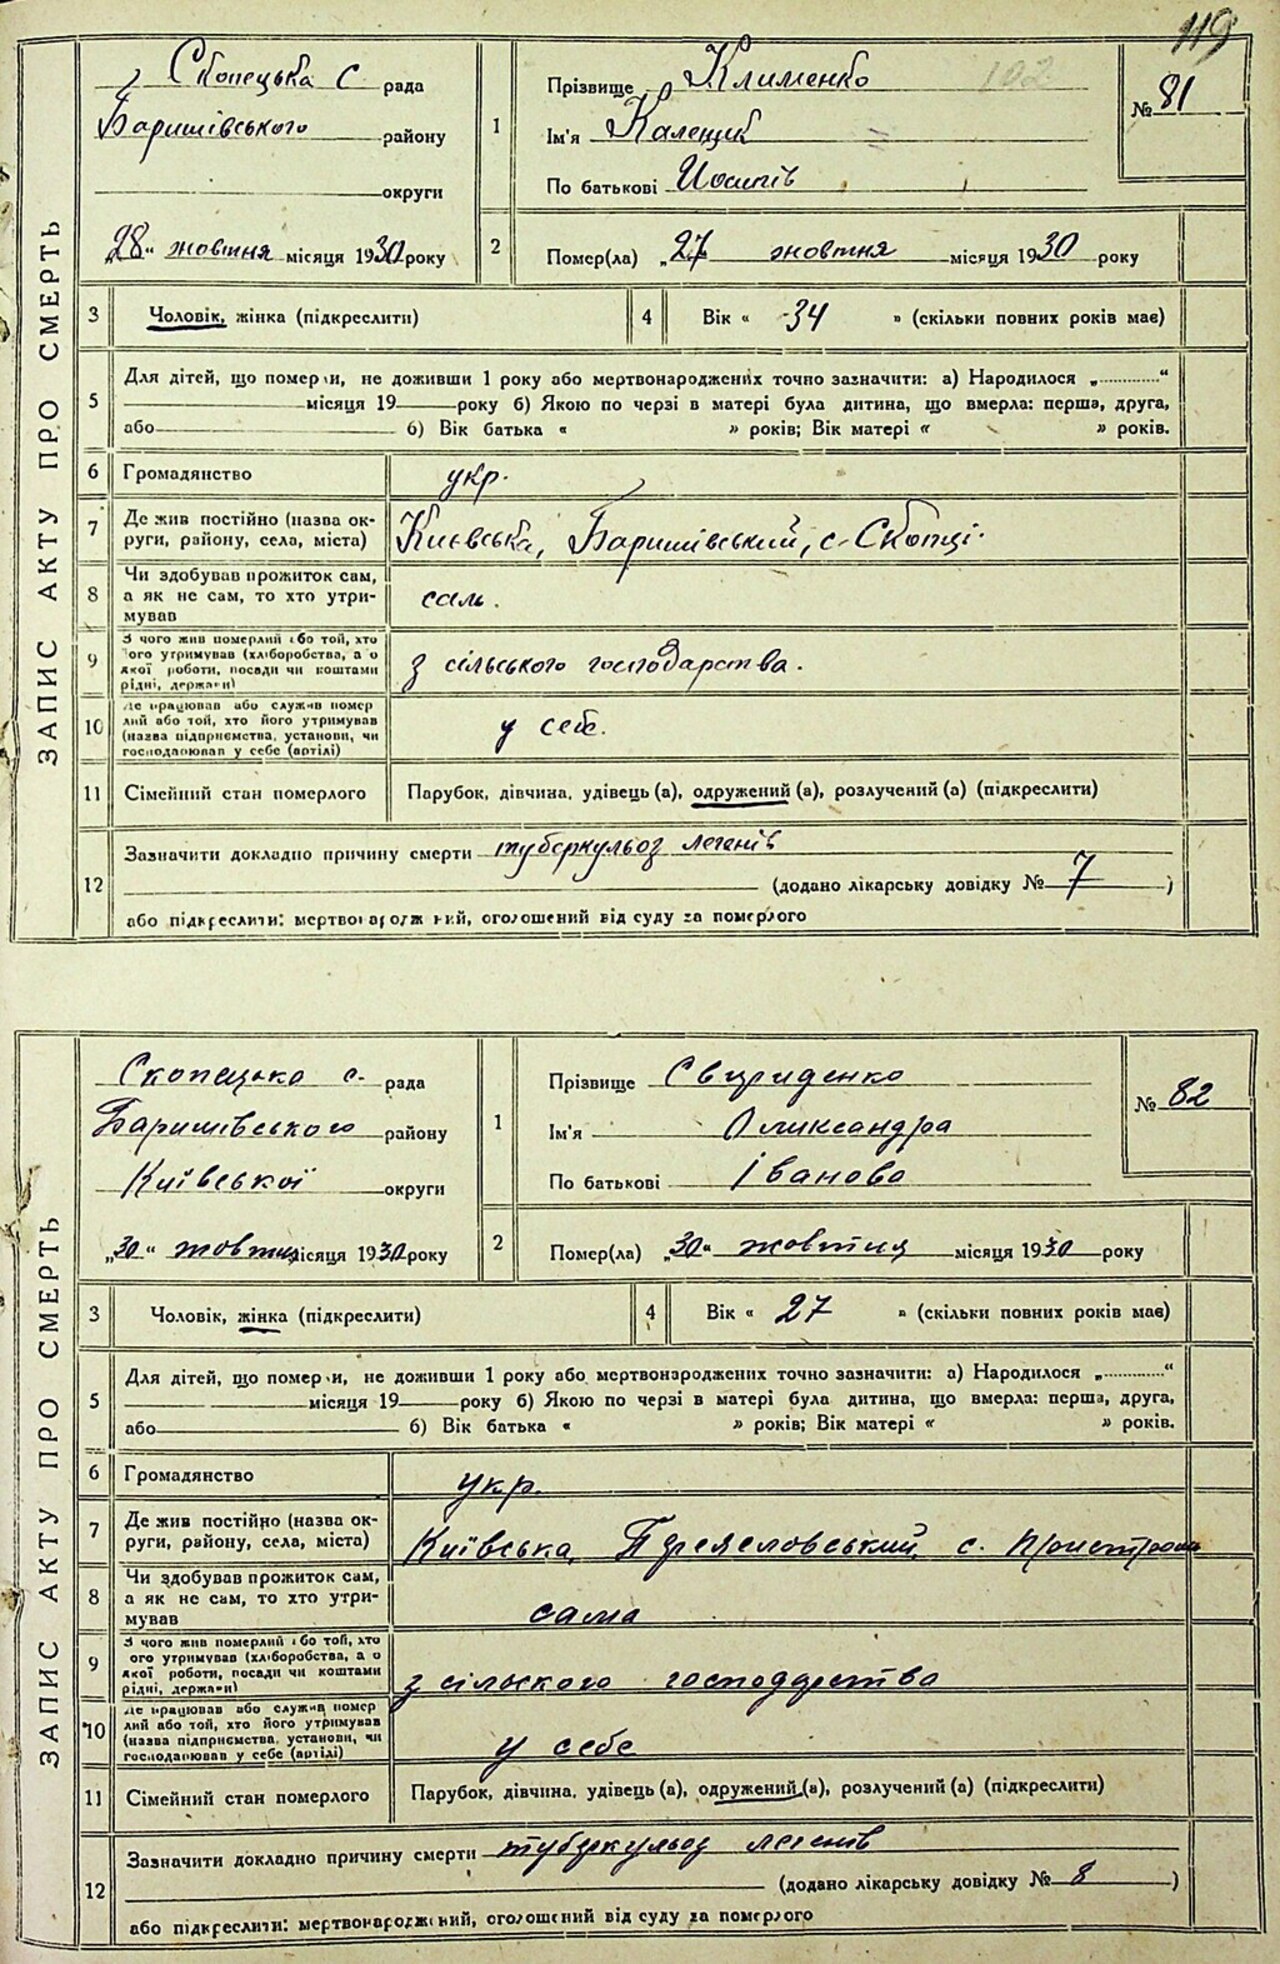 119
ЗАПИС АКТУ ПРО СМЕРТЬ
Скопецька с рада
Баришівського району
округи
„28“ жовтня місяця 1930 року
1
Прізвище Клименко 102
Ім'я Калещик
По батькові Йосипів
№ 81
2
Помер(ла) „27 жовтня місяця 1930 року
3 Чоловік, жінка (підкреслити)
4 Вік « 34 » (скільки повних років має)
5 Для дітей, що померли, не доживши 1 року або мертвонароджених точно зазначити: а) Народилося „............“
місяця 19 року б) Якою по черзі в матері була дитина, що вмерла: перша, друга,
або б) Вік батька « » років; Вік матері « » років.
6 Громадянство укр.
7 Де жив постійно (назва ок-
руги, району, села, міста) Києвська, Баришівський, с. Скопці.
8 Чи здобував прожиток сам,
а як не сам, то хто утри-
мував сам.
9 З чого жив померлий або той, хто
ого утримував (хліборобства, а о
якої роботи, посади чи коштами
рідні, держави) з сільського господарства.
10 Де працював або служив помер
лий або той, хто його утримував
(назва підприємства, установи, чи
господарював у себе (артілі) у себе.
11 Сімейний стан померлого Парубок, дівчина, удівець (а), одружений (а), розлучений (а) (підкреслити)
12 Зазначити докладно причину смерти туберкульоз легенів
(додано лікарську довідку № 7 )
або підкреслити: мертвонароджений, оголошений від суду за померлого
ЗАПИС АКТУ ПРО СМЕРТЬ
Скопецько с. рада
Баришівського району
Київської округи
„30“ жовтня місяця 1930 року
1
Прізвище Свириденко
Ім'я Олександра
По батькові Іванова
№ 82
2
Помер(ла) „30“ жовтня місяця 1930 року
3 Чоловік, жінка (підкреслити)
4 Вік « 27 » (скільки повних років має)
5 Для дітей, що померли, не доживши 1 року або мертвонароджених точно зазначити: а) Народилося „............“
місяця 19 року б) Якою по черзі в матері була дитина, що вмерла: перша, друга,
або б) Вік батька « » років; Вік матері « » років.
6 Громадянство укр.
7 Де жив постійно (назва ок-
руги, району, села, міста) Київська, Переяславський, с.
8 Чи здобував прожиток сам,
а як не сам, то хто утри-
мував сама
9 З чого жив померлий або той, хто
ого утримував (хліборобства, а о
якої роботи, посади чи коштами
рідні, держави) з сільского господарства
10 Де працював або служив помер
лий або той, хто його утримував
(назва підприємства, установи, чи
господарював у себе (артілі) у себе
11 Сімейний стан померлого Парубок, дівчина, удівець (а), одружений (а), розлучений (а) (підкреслити)
12 Зазначити докладно причину смерти туберкульоз легенів
(додано лікарську довідку № 8 )
або підкреслити: мертвонароджений, оголошений від суду за померлого